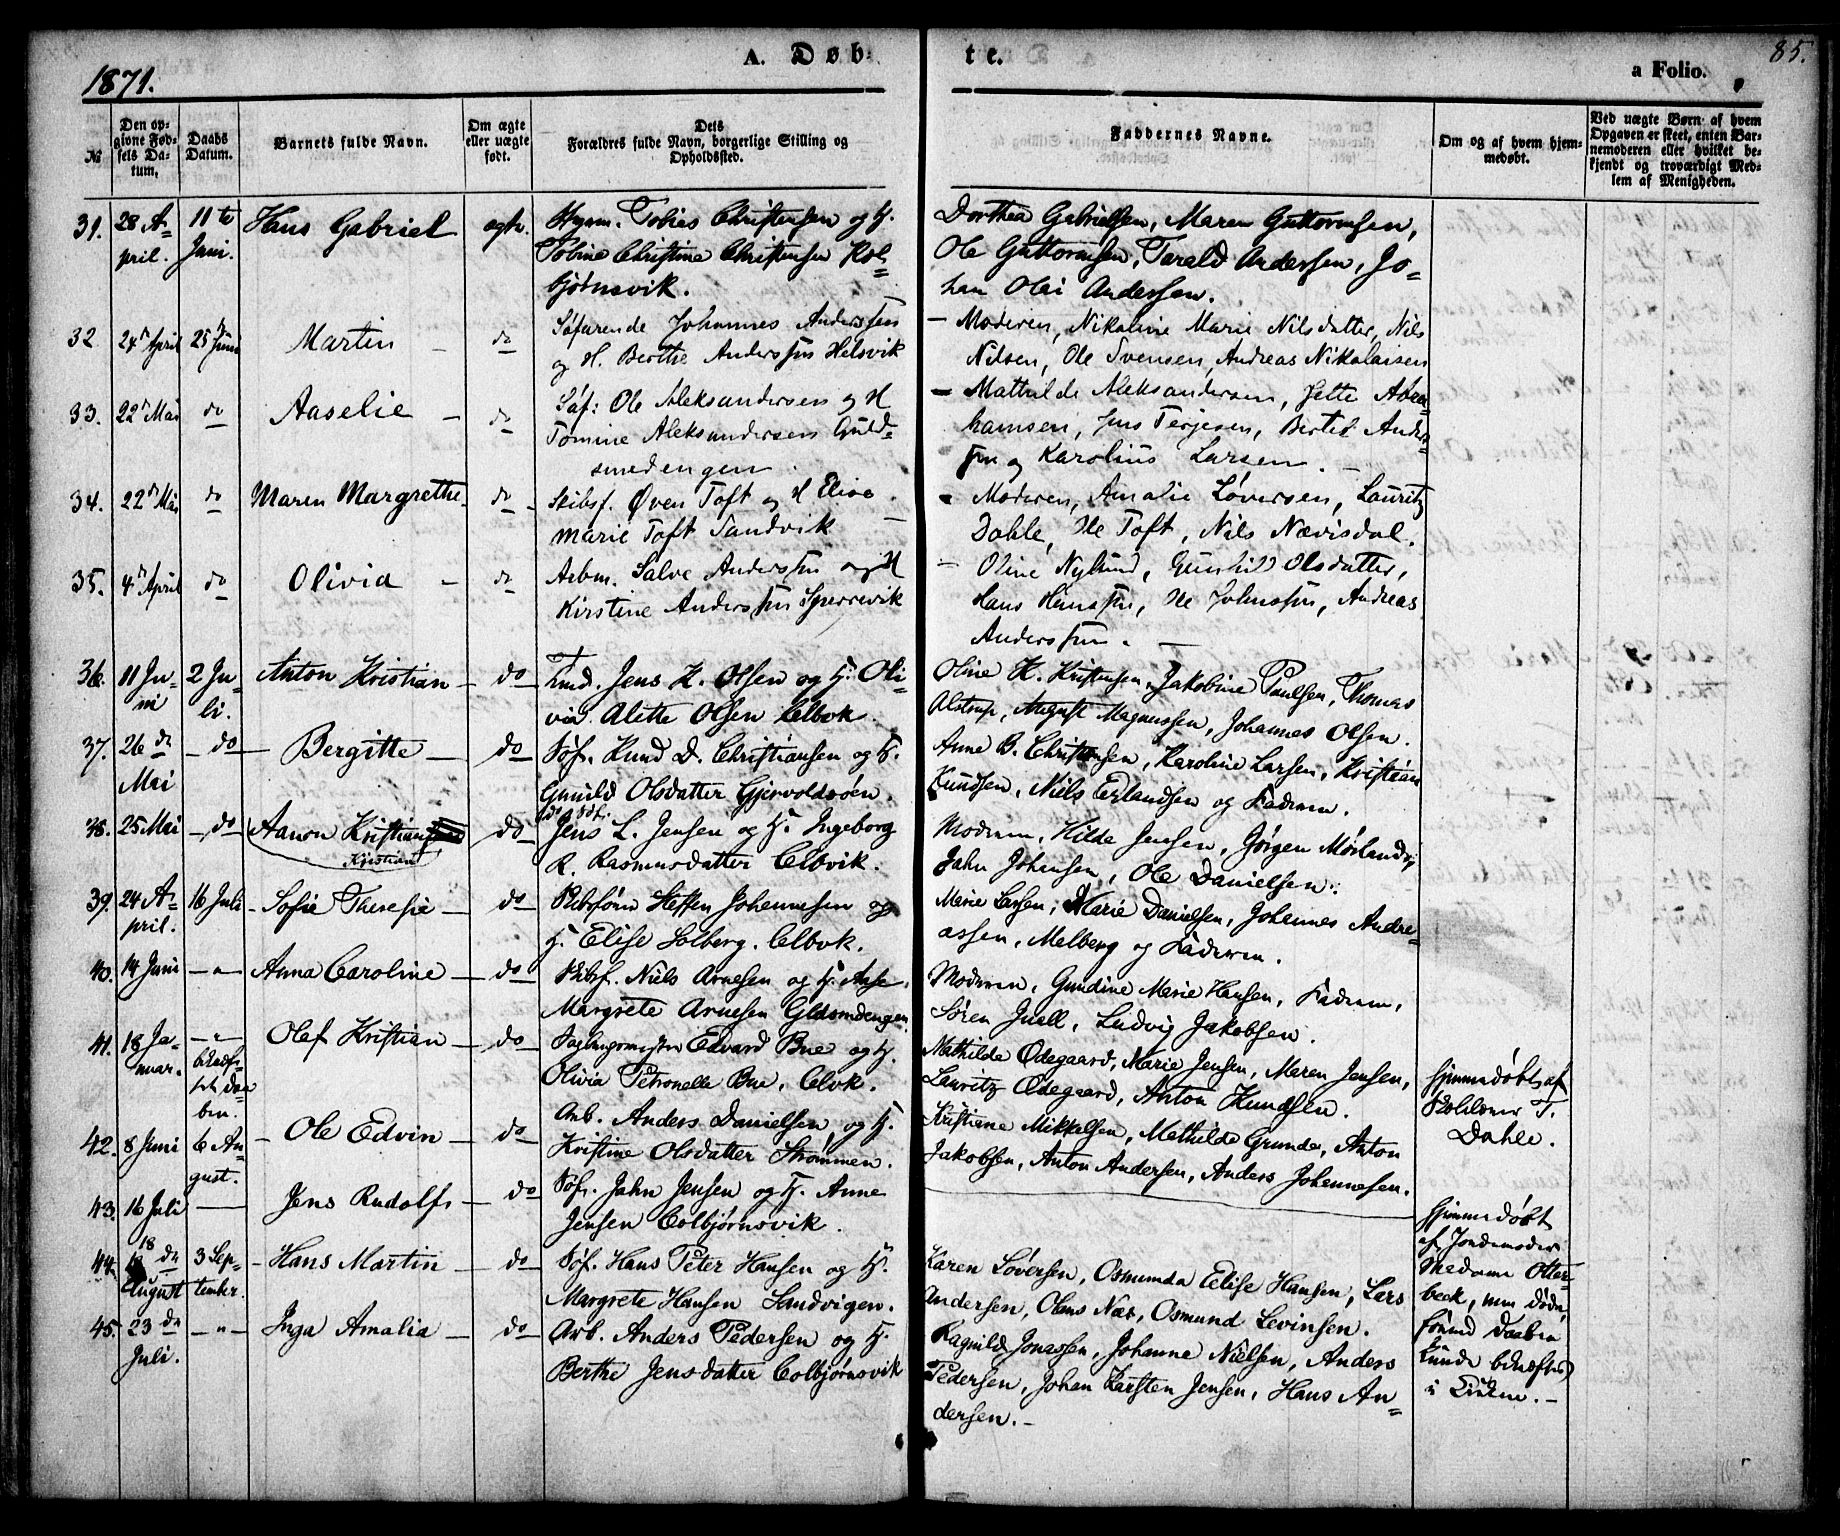 1871.
A. Døb-
te.
a Folio.
85.
№
Den op-
givne Fød-
sels Da-
tum.
Daabs
Datum.
Barnets fulde Navn.
Om ægte
eller uægte
født.
Dets
Forældres fulde Navn, borgerlige Stilling og
Opholdssted.
Faddernes Navne.
Om og af hvem hjem-
medøbt.
Ved uægte Børn af hvem
Opgaven er skeet, enten Bar-
nemoderen eller hvilket be-
kjendt og troværdigt Med-
lem af Menigheden.
31.
28 A-
pril.
11te
Juni.
Hans Gabriel
ægte.
Tobias Christensen og H.
Tobine Christine Christensen Kol-
bjørnsvik.
Dorthea Gabrielsen, Maren Guttormsen,
Ole Guttormsen, Tarald Anderssen, Jo-
han Olai Anderssen.
32
24de April
25 Juni
Martin
do
Søfarende Johannes Anderssen
og H. Berthe Anderssen Helsvik
- Moderen, Nikoline Marie Nilsdatter, Nils
Nilsen, Ole Svensen, Andreas Nikolaisen
33.
22de Mai
do
Aaselie
do
Søf: Ole Aleksandersen og H
Tomine Aleksandersen Guld-
smedengen
- Mathilde Aleksandersen, Jette Abra-
hamsen, Jens Terjesen, Bertel Anders-
sen og Karolius Larsen.
34.
22de Mai
do
Maren Margrethe
do
Skibsf. Øven Toft og H Elise
Marie Toft Sandvik
- Moderen, Amalie Løversen, Lauritz
Dahle, Ole Toft, Nils Nævisdal.
35.
4de April
do
Olivia
do
Arbm. Salve Anderssen og H
Kirstine Anderssen Sperrevik
- Oline Nylund, Gunhild Olsdatter,
Hans Hanssen, Ole Johnssen, Andreas
Anderssen.
36.
11 Ju-
ni
2 Ju-
li.
Anton Kristian
do
Tmd. Jens K. Olsen og H. Oli-
via Alette Olsen Colbvk.
Oline K. Kristensen, Jakobine Paulsen, Thomas
Alstrup, August Magnussen, Johannes Olsen.
37.
26 de
Mai
do
Bergitte
do
Søf. Knud D. Christiansen og H.
Gunild Olsdatter Gjervoldsøen.
Anne B. Christensen, Karoline Larsen, Kristian
Knudsen, Niels Erlandsen og Faderen.
38.
25 Mai
do
Aanon Kristian
Kristian
do
Jens L. Jensen og H. Ingeborg
R. Rasmusdatter Colbvik.
Moderen, Hilda Jensen, Jørgen Mørland,
Jahn Johnsen, Ole Danielsen.
39.
24 A-
pril.
16 Juli
Sofie Theresie
do
Steffen Johannesen og
H. Elise Solberg. Colbvk.
Marie Larsen, Marie Danielsen, Johannes Andre-
assen, Melberg og Faderen.
40.
14 Juni
- " -
Anna Caroline
do
Skibsf. Niels Arnesen og H. Aase
Margrete Arnesen Gldsmdengen
Moderen, Gundine Marie Hansen, Faderen,
Søren Juell, Ludvig Jakobsen.
41.
18 Ja-
nuar.
- " -
Olaf Kristian
do
Edvard Bue og H.
Olivia Petronelle Bue, Colvk.
Mathilda Ødegaard, Marie Jensen, Maren Jensen,
Lauritz Ødegaard, Anton Knudsen.
Hjemmedøbt af
T.
Dahle.
42.
8 Juni
6 Au-
gust.
Ole Edvin
do
Arb. Anders Danielsen og H.
Kristine Olsdatter Strømmen.
Kristiane Mikkelsen, Mathilde Grunde, Anton
Jakobsen, Anton Andersen, Anders Johannesen.
43.
16 Juli
Jens Rudolf
do
Søf. Jahn Jensen og H. Anne
Jensen Colbjørnsvik.
Hjemmedøbt
af Jordemoder
Madame Otter-
beck, men døde,
førend Daaben
kunde bekræftes
i Kirken. -
44.
18 de
August
3 Sep-
tember.
Hans Martin
do
Søf. Hans Peter Hansen og H.
Margrete Hansen Sandvigen.
Karen Løversen, Osmunda Elise Hansen, Lars
Andersen, Olaus Næs, Osmund Levinsen.
45.
23 de
Juli.
- " -
Inga Amalia
do
Arb. Anders Pedersen og H.
Berthe Jensdatter Colbjørnsvik
Ragnild Jonassen, Johanne Nielsen, Anders
Pedersen, Johan Karsten Jensen, Hans An-
dersen. -